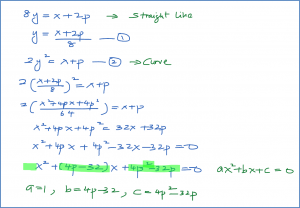 8y = x+2p → Straight Line
y = x+2p/8 — ①
2y² = x+p — ② → Curve
2(x+2p/8)² = x+p
2(x²+4px+4p²/64) = x+p
x²+4px+4p² = 32x+32p
x²+4px+4p²-32x-32p=0
x²+(4p-32)x+4p²-32p=0 ax²+bx+c=0
a=1, b=4p-32, c=4p²-32p